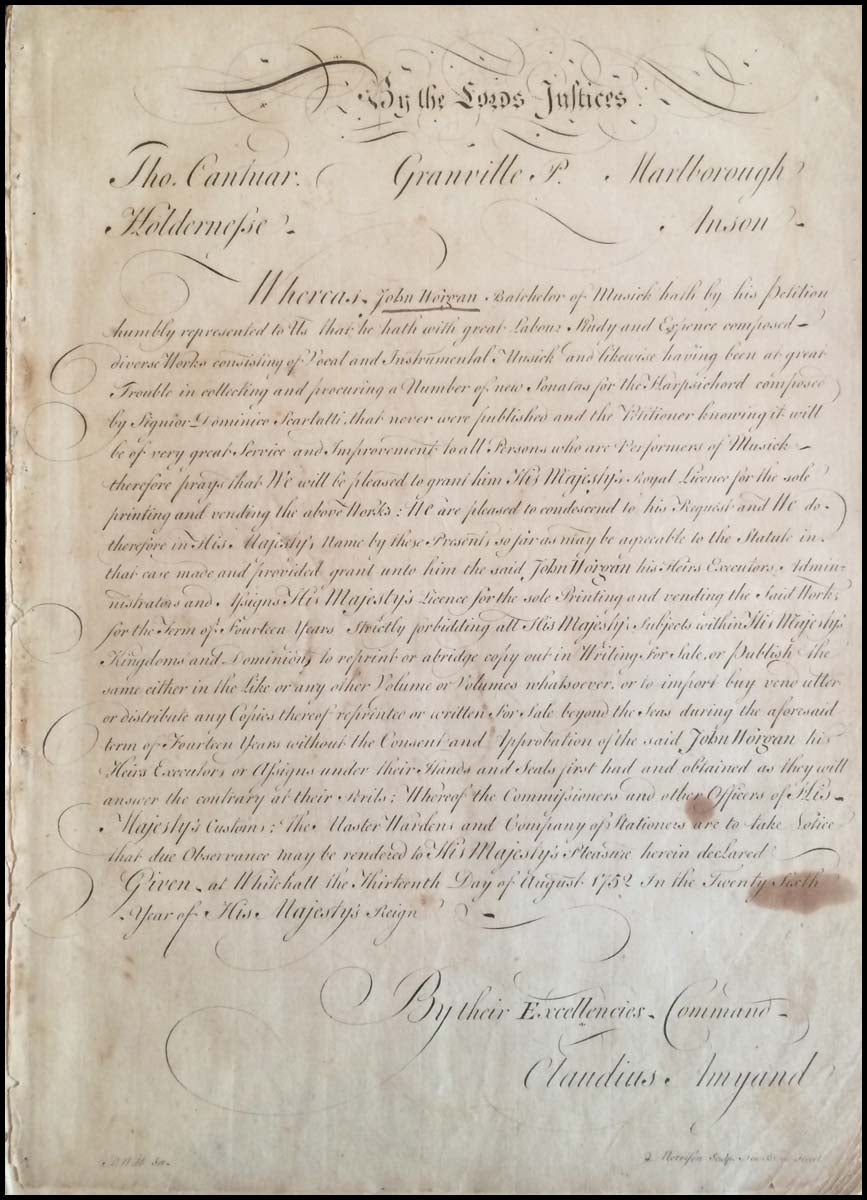 By the Lords Justices.
Tho. Cantuar. Granville P. Marlborough
Holdernesse Anson
Whereas John Worgan Batchelor of Musick hath by his Petition
humbly represented to Us that he hath with great Labour Study and Expence composed
diverse Works consisting of Vocal and Instrumental Musick and likewise having been at great
Trouble in collecting and procuring a Number of new Sonatas for the Harpsichord composed
by Signior Dominico Scarlatti, that never were published and the Petitioner knowing it will
be of very great Service and Improvement to all Persons who are Performers of Musick
therefore prays that We will be pleased to grant him His Majesty's Royal Licence for the sole
printing and vending the above Works: We are pleased to condescend to his Request and We do
therefore in His Majesty's Name by these Presents so far as may be agreeable to the Statute in
that case made and provided grant unto him the said John Worgan his Heirs Executors Admin-
nistrators and Assigns His Majesty's Licence for the sole Printing and vending the Said Works
for the Term of Fourteen Years Strictly forbidding all His Majestys Subjects within His Majesty's
Kingdoms and Dominions to reprint or abridge copy out in Writing For Sale, or Publish the
same either in the Like or any other Volume or Volumes whatsoever, or to import buy vend utter
or distribute any Copies thereof reprinted or written For Sale beyond the Seas during the aforesaid
term of Fourteen Years without the Consent and Approbation of the said John Worgan his
Heirs Executors or Assigns under their Hands and Seals first had and obtained as they will
answer the contrary at their Perils; Whereof the Commissioners and other Officers of His
Majesty's Customs; the Master Wardens and Company of Stationers are to take Notice
that due Observance may be rendered to His Majesty's Pleasure herein declared
Given at Whitehall the Thirteenth Day of August 1752 In the Twenty Sixth
Year of His Majesty's Reign
By their Excellencies Command
Claudius Amyand
Morrison Sculp.